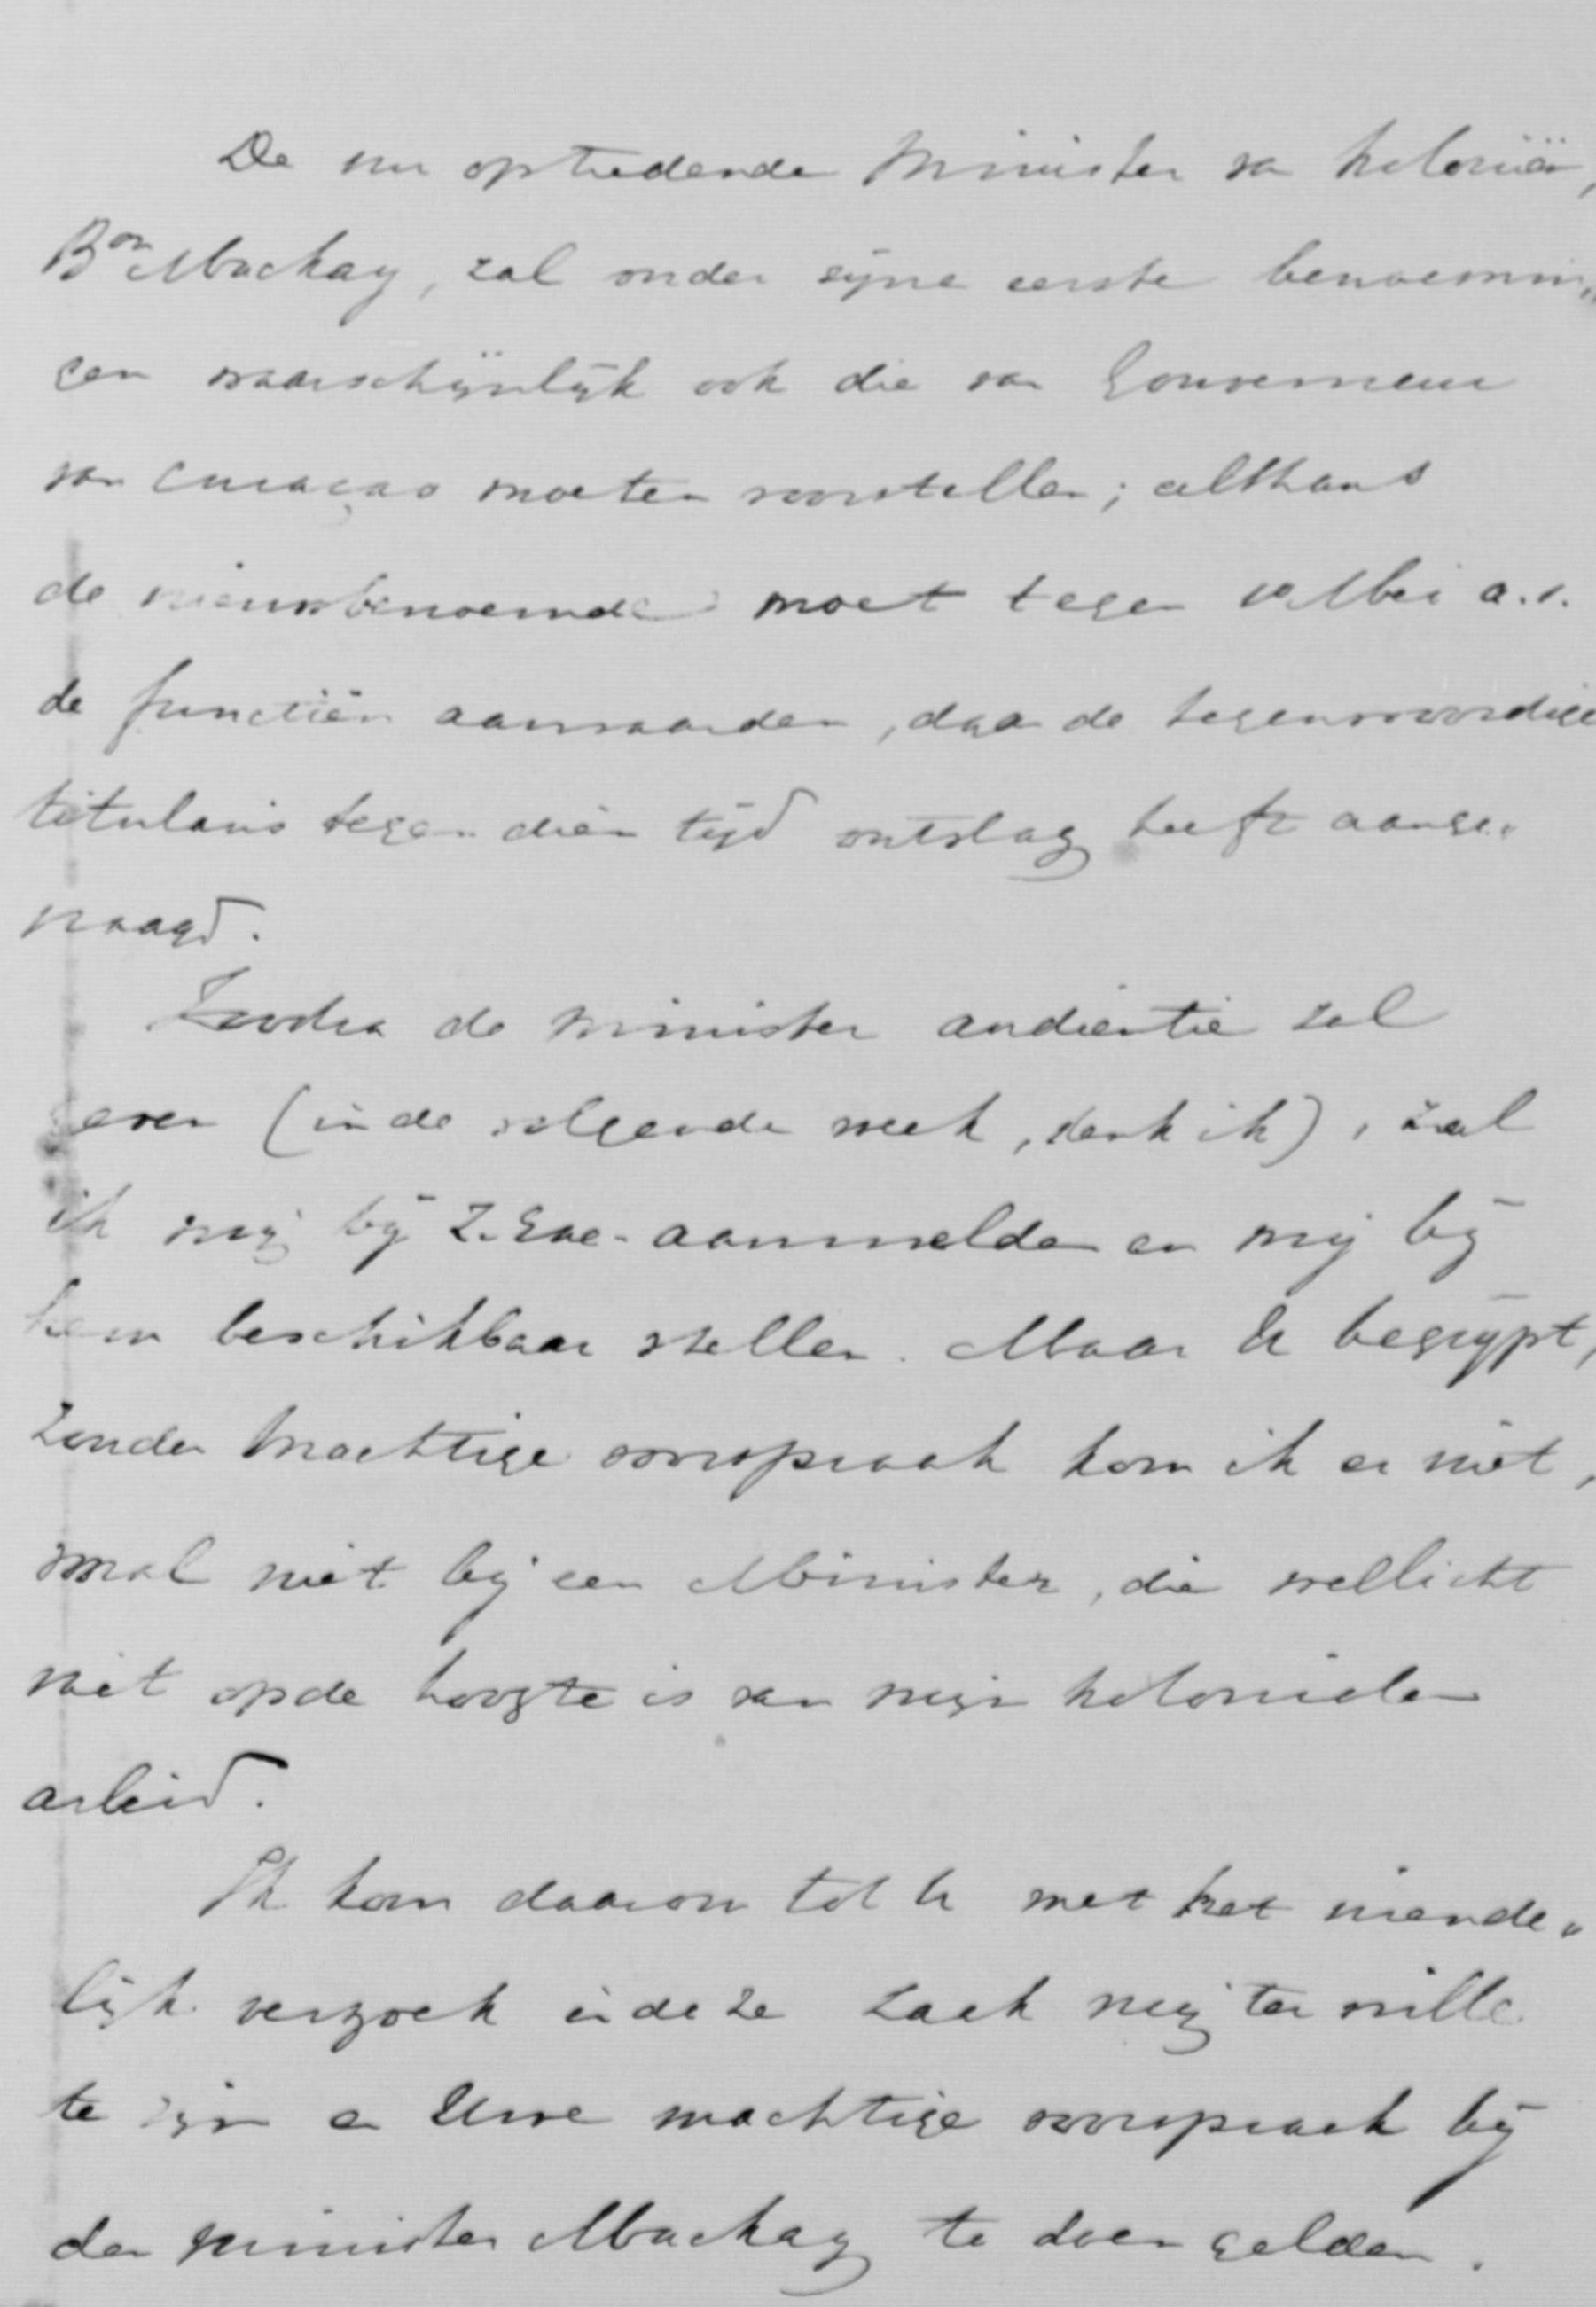 De nu optredende Minister van Koloniën,
Bon Mackay, zal onder zijne eerste benoemin„
gen waarschijnlijk ook die van Gouverneur
van Curaçao moeten voorstellen; althans
de nieuwbenoemde moet tegen 10 Mei a.s.
de functiën aanvaarden, daar de tegenwoordige
titularis tegen dien tijd ontslag heeft aange„
vraagd.
Zoodra de minister audiëntie zal
geven (in de volgende week, denk ik), zal
ik mij bij Z. Exc. aanmelden en mij bij
hem beschikbaar stellen. Maar U begrijpt,
zonder machtige voorspraak kom ik er niet,
vooral niet bij een Minister, die wellicht
niet op de hoogte is van mijn kolonialen
arbeid.
Ik kom daarom tot U met het vriende„
lijk verzoek in deze zaak mij ter wille
te zijn en Uwe machtige voorspraak bij
den minister Mackay te doen gelden.